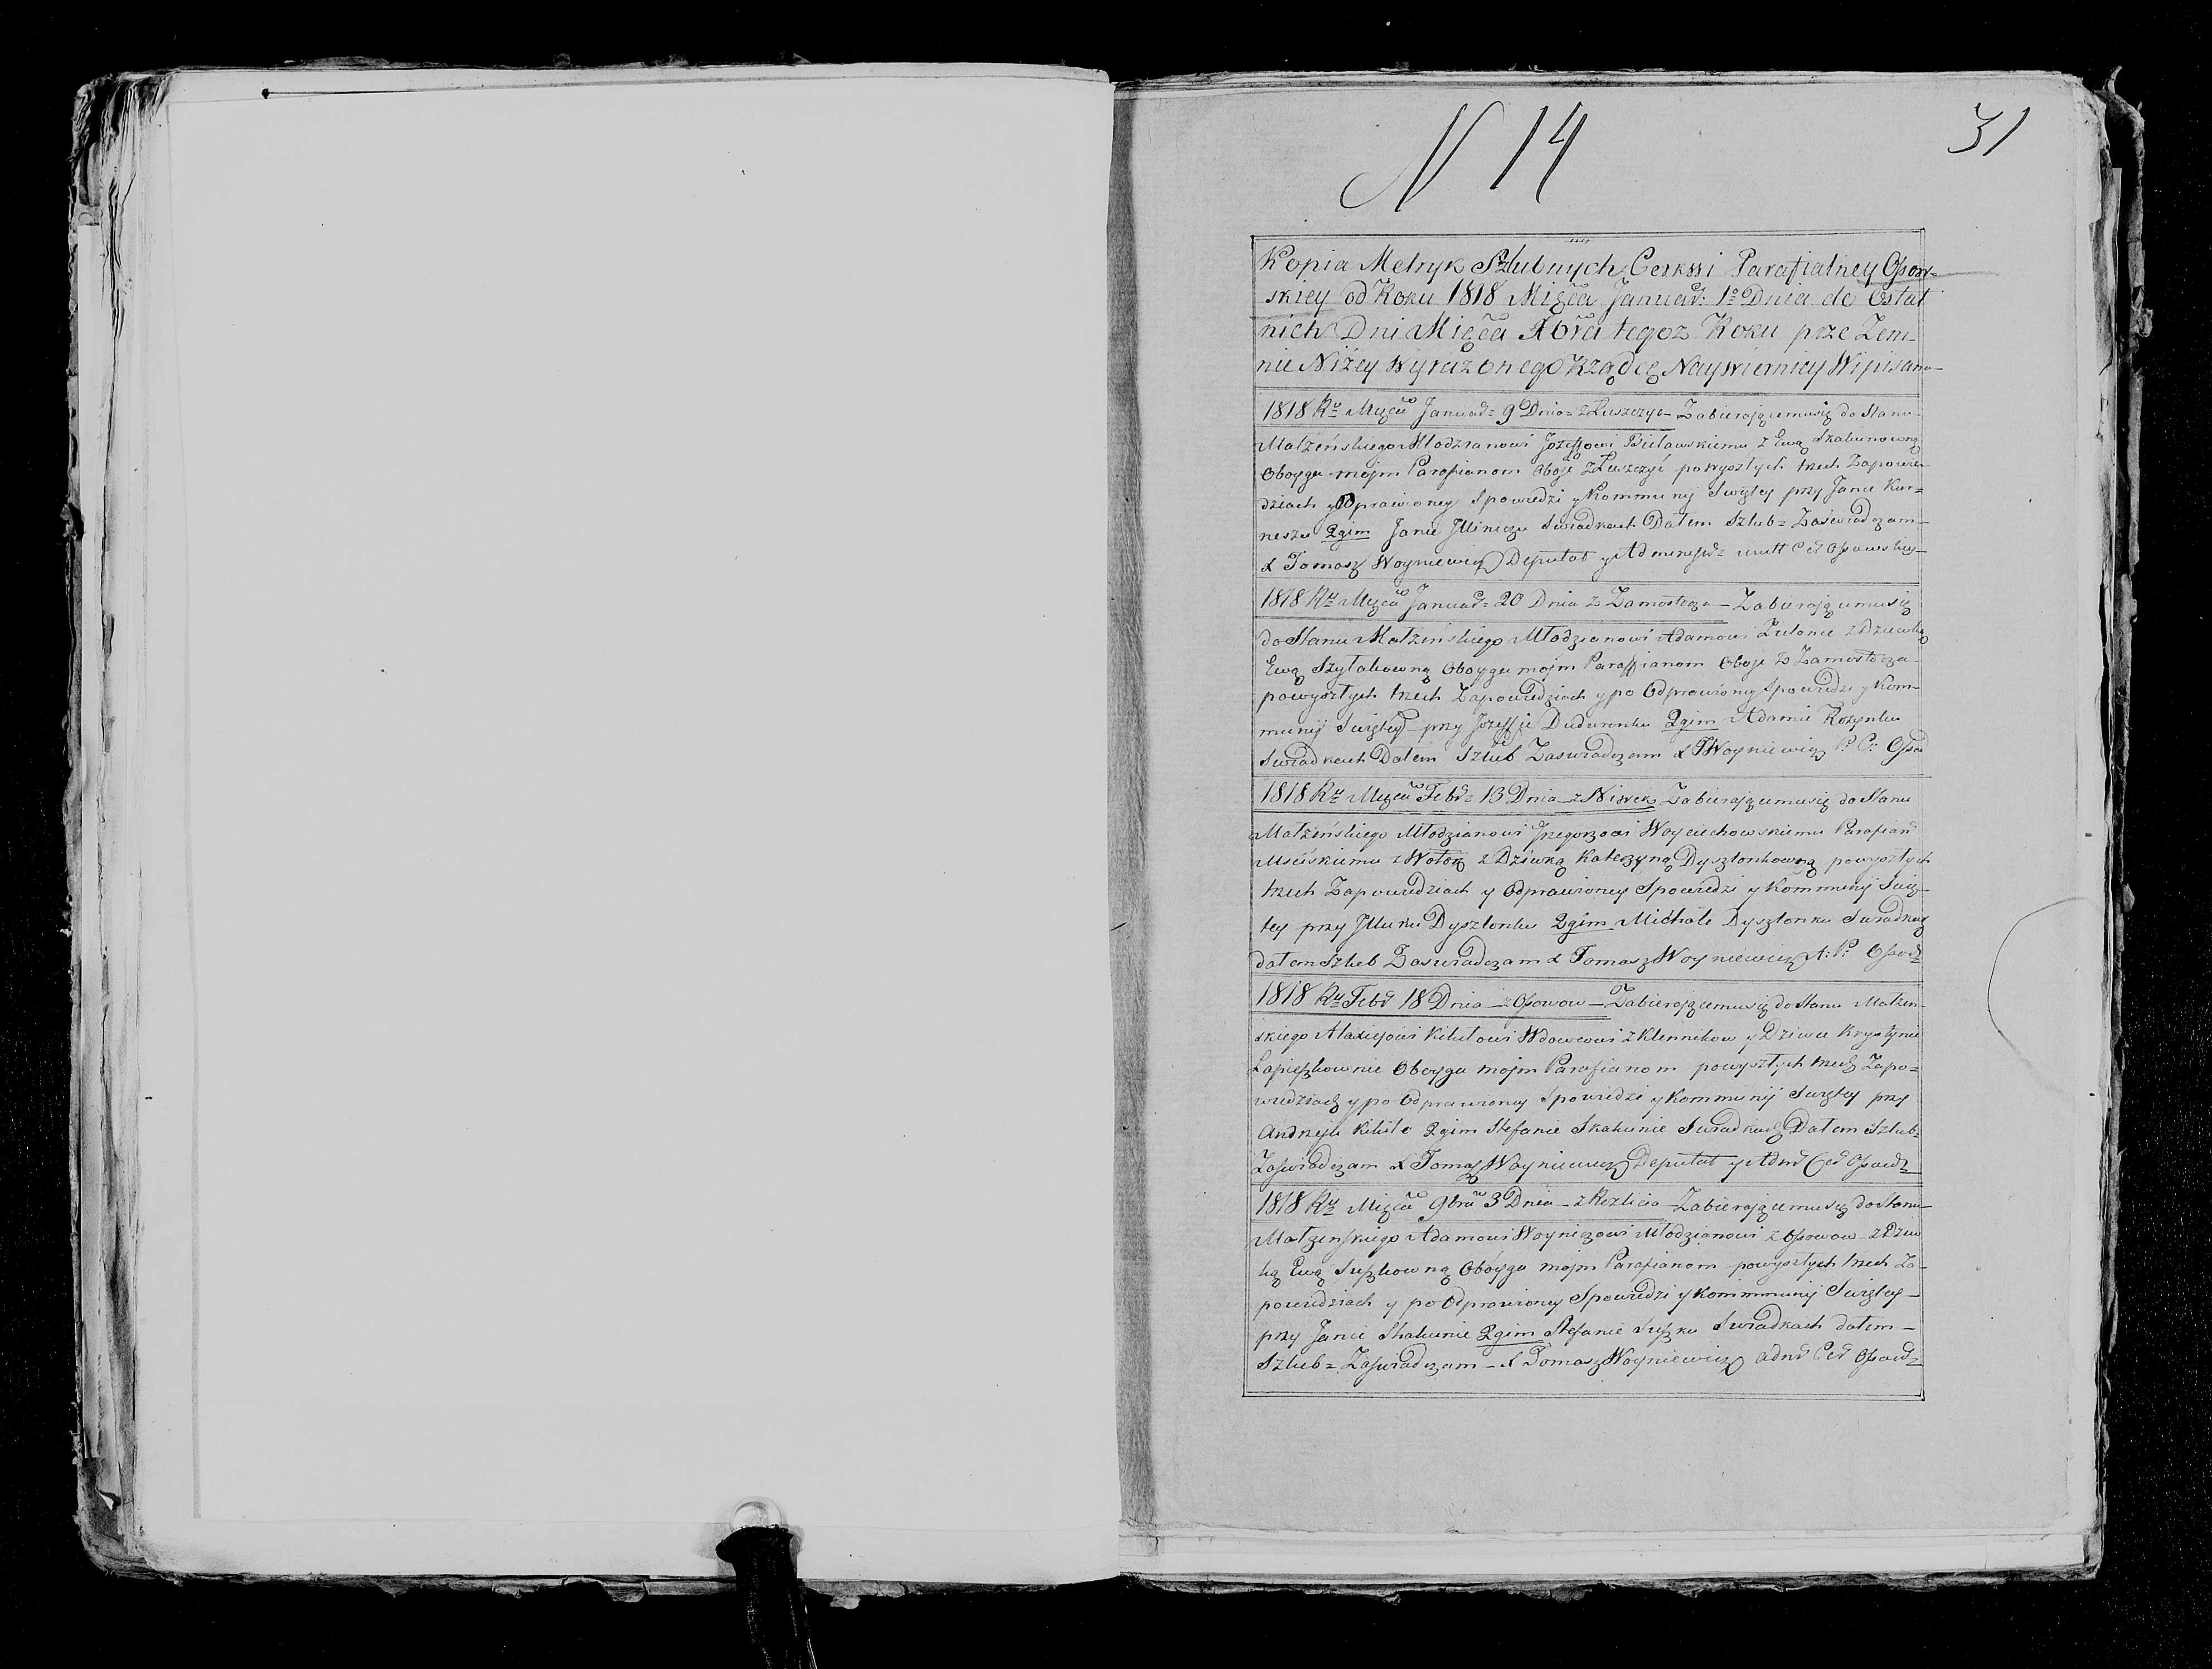 N 14
31
Kopia Metryk Szlubnych Cerkwi Parafialney Ossow-
skiey od Roku 1818 Mięca Januar: 1º Dnia do Ostat
nich Dni Mięca Xbra tegoz Roku prze Zem-
nie Niżey Wyrażonego Rządcę Naywierniey Wipisana
1818 Ru Mięca Januar= 9 Dnia= z Luszczyc- Zabierającemusię do Stanu
Małżeńskiego Młodzianowi Jozeffowi Bielawskiemu z Ewą Skakunowną
Oboyga mojm Parafianom Oboje z Luszczyć powyszłych trzech Zapowie-
dziach y Odprawioney Spowiedzi y Kommunij Swiętey przy Janie Kur=
neszu 2gim Janie Jliniczu Swiadkach Dałem Szlub= Zaświadczam-
X Tomasz Woyniewicz Deputat y Ossowskiey-
1818 Ru Mięca Januar= 20 Dnia z Zamostocza- Zabierającemusię
do Stanu Małżeńskiego Młodzianowi Adamowi z Dziewką
Ewą Szytakowną Oboyga mojm Paraffianom Oboje z Zamostocza-
powyszłych trzech Zapowiedziach y po Odprawioney Spowiedzi y Kom-
munij Swiętey- przy Jozeffie Dudaronku 2gim Adamie Kozynku
Swiadkach Dałem Szlub Zaswiadczam X T Woyniewicz P: C: Ossow
1818 Ru Mięca Febr= 13 Dnia- z Nisrek Zabierającemusię do Stanu
Małżeńskiego Młodzianowi Grzegorzowi Woyciechowskiemu Parafian
Msciskiemu z Wołok z Dziwką Katerzyną Dyszlonkowną powyszłych
trzech Zapowiedziach y Odprawioney Spowiedzi y Kommunij Swię-
tey przy Jllunu Dyszlonku 2gim Michale Dyszlonku Swiadkach
dałem Szlub Zaswiadczam X Tomasz Woyniewicz A: P: Ossow=
1818 Ru Febr 18 Dnia- z Ossowow- Zabierającemusię do Stanu Małżen-
skiego Alaxiejowi Kikiłowi Wdowcowi z Klennikow y Dziwce Krystynie
Łapieszkownie Oboyga mojm Parafianom powyszłych trzech Zapo=
wiedziach y po Odprawioney Spowiedzi y Kommunij Swiętey przy
Andrzeju Kikile 2gim Stefanie Skakunie Swiadkach Dałem Szlub=
Zaswiadczam X Tomasz Woyniewicz Deputat y Admr Cer Ossow=
1818 Ru Mięca 9bra 3 Dnia- z Rozlicia- Zabierającemusię do Stanu-
Małżenskiego Adamowi Woyniczowi Młodzianowi z Ossowow- z Dziw
ką Ewą Suszkowną Oboyga mojm Parafianom powyszłych trzech Za-
powiedziach y po Odprawioney Spowiedzi y Kommmunij Swiętey-
przy Janie Skakunie 2gim Stefanie Suszku Swiadkach dałem-
Szlub= Zaswiadczam- X Tomasz Woyniewicz Admr Cer Ossow=